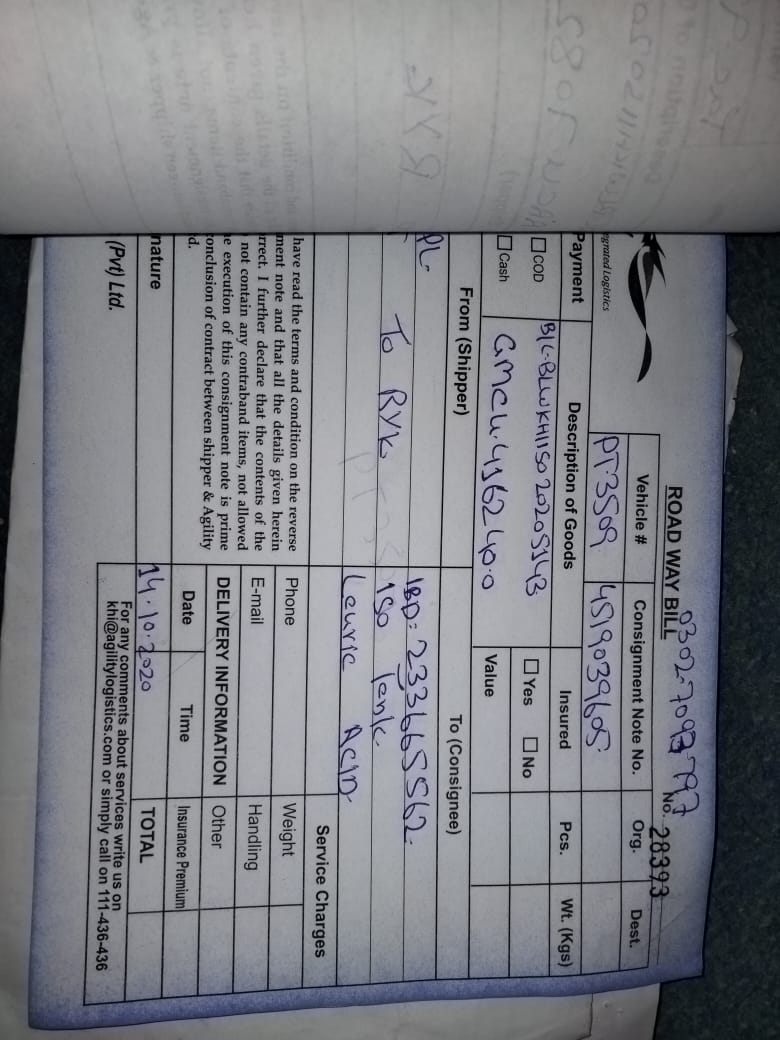 0302-7093797
ROAD WAY BILL
No. 28393
Vehicle #
Consignment Note No.
Org.
Dest.
PT-3509
4519039605
egrated Logistics
Payment
Description of Goods
Insured
Pcs.
Wt. (Kgs)
COD
B/L-BLWKH11SO20205143
Yes No
Cash
GMCU-4162400
Value
From (Shipper)
To (Consignee)
PL-
IBD: 233665562
To RYK
ISO Tank
Lauric ACID
Service Charges
have read the terms and condition on the reverse
ment note and that all the details given herein
rrect. I further declare that the contents of the
not contain any contraband items, not allowed
e execution of this consignment note is prime
onclusion of contract between shipper & Agility
d.
Phone
Weight
E-mail
Handling
DELIVERY INFORMATION
Other
Date
Time
Insurance Premium
nature
14.10.2020
TOTAL
(Pvt) Ltd.
For any comments about services write us on
khi@agilitylogistics.com or simply call on 111-436-436